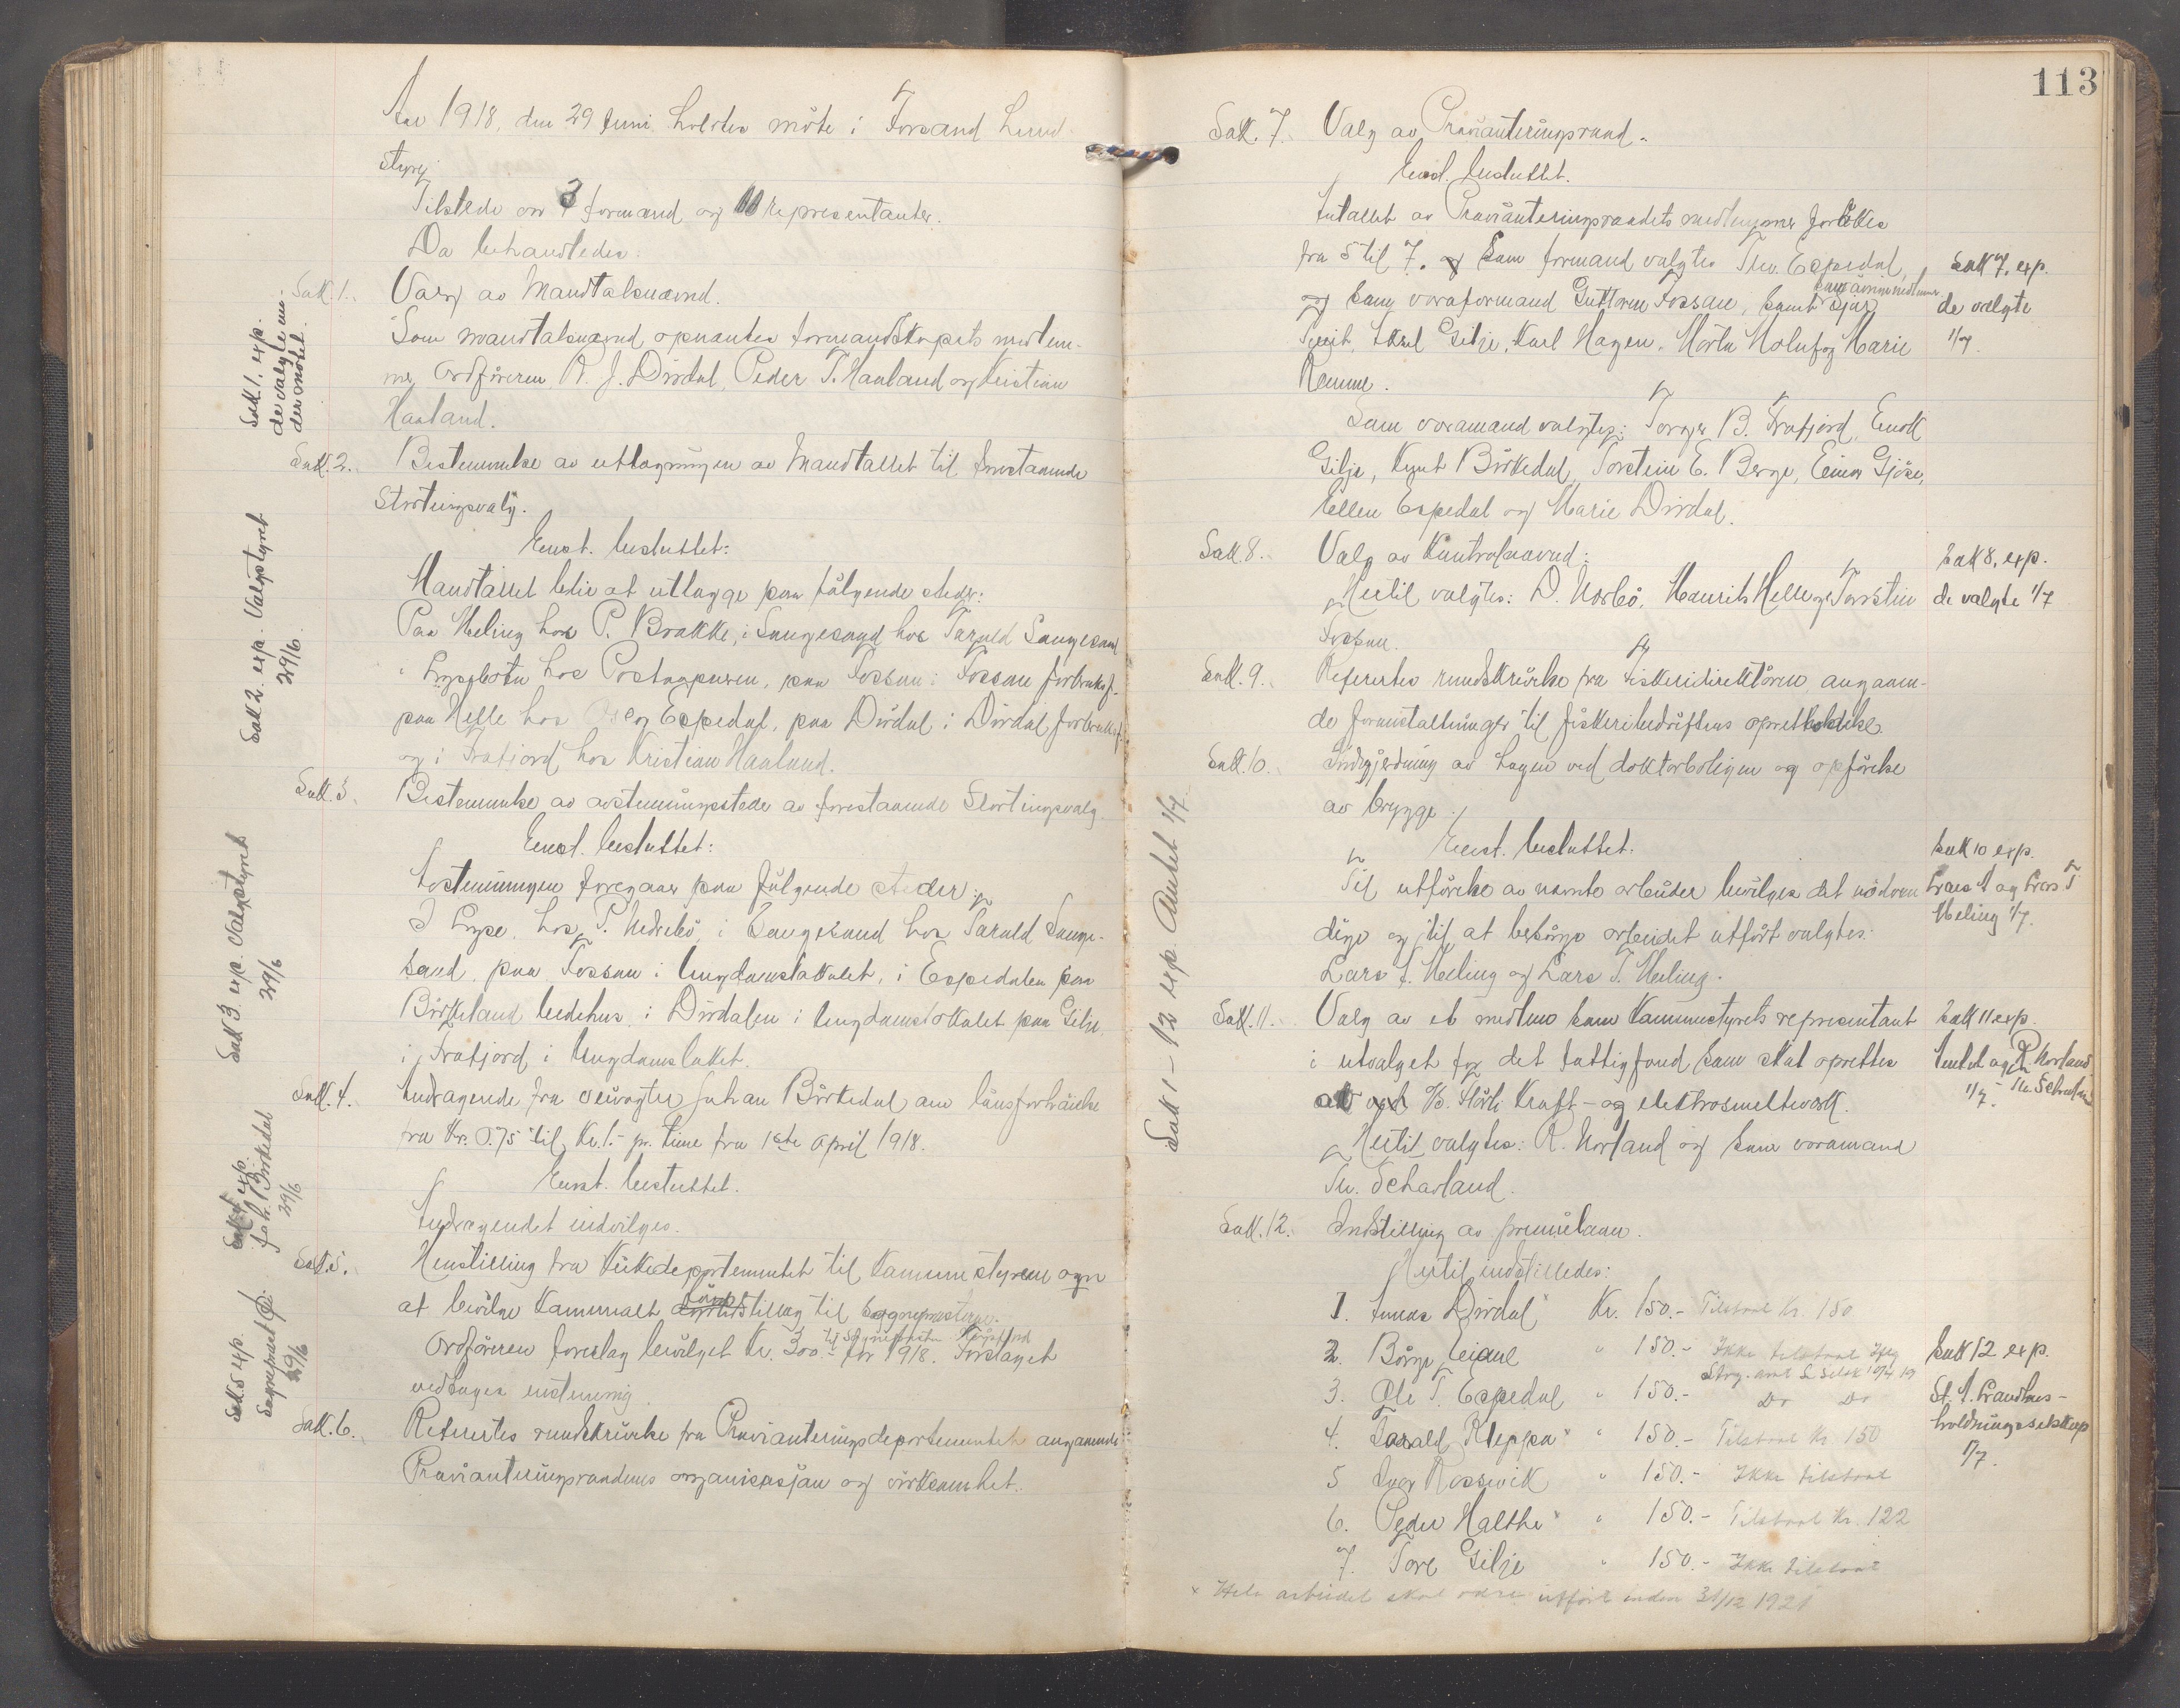 Aar 1918, den 29 Juni holdtes møte i Forsand herred-
styre.
Tilstede var 3 formænd og 10 repræsentanter.
Da behandledes:
Sak. 1. Valg av Mandtalsnævnd.
Som mandtalsnævnd opnævntes formandskapets medlem-
mer Ordføreren R. J. Dirdal, Peder T. Haaland og Kristian
Haaland.
Sak. 1. exp.
de valgte un-
der mötet.
Sak. 2. Bestemmelse av utlægningen av Mandtallet til forestaaende
Stortingsvalg.
Enst. besluttet:
Mandtallet blir at utlægge paa følgende steder:
Paa Meling hos P. Brakke, i Songesand hos Tarald Songesand
i Lysebotn hos Postaapneren, paa Fossan i Fossan forbruksf.
paa Helle hos Espedal, paa Dirdal i Dirdal forbruksf.
og i Frafjord hos Kristian Haaland.
Sak 2. exp. Valgstyret
29/6.
Sak. 3. Bestemmelse av avstemningssteder av forestaaende Stortingsvalg.
Enst. besluttet:
Avstemningen foregaar paa følgende steder:
I Lyse hos T. Nedrebö, i Songesand hos Tarald Songe-
sand, paa Fossan i Ungdomslokalet, i Espedalen paa
Birkeland bedehus, i Dirdalen i Ungdomslokalet paa Gilje,
i Frafjord i Ungdomslokalet.
Sak 3. exp. Valgstyret
29/6
Sak. 4. Andragende fra veivogter Johan Birkedal om lønsforhøielse
fra Kr. 0.75 til Kr. 1.- pr. time fra 1ste April 1918.
Enst. besluttet.
Andragendet indvilges.
Sak 4 exp.
Joh. Birkedal
29/6
Sak. 5. Henstilling fra Kirkedepartementet til Kommunestyrene om
at bevilge kommunalt tillæg til Sogneprestene.
Ordføreren foreslog bevilget Kr. 300.- til Sognepresten for 1918. Forslaget
vedtages enstemmig.
Sak 5 exp.
Sogneprest
29/6
Sak. 6. Refertes rundskrivelse fra Provianteringsdepartementet angaaende
Provianteringsraadenes organisasjon og virksomhet.
113
Sak. 7. Valg av Provianteringsraad.
Enst. besluttet.
Antallet av Provianteringsraadets medlemmer forökes
fra 5 til 7. og Som formand valgtes Thv. Espedal,
og som varaformand Guttorm Fossan, samt som menige medlemmer
Axel Gilje, Karl Hagen, Marta Molauf og Marie
Rømme.
Som varamænd valgtes: Torger B. Frafjord, Enok
Gilje, Knut Birkedal, Torstein E. Berge, Einar Gjöse,
Ellen Espedal og Marie Dirdal.
Sak 7. exp.
de valgte
1/7
Sak 8. Valg av Kontrolnævnd:
Hertil valgtes: D. Norbö, Mauritz Helle og Torstein
Fossan.
Sak 8. exp.
de valgte 1/7
Sak. 9. Refertes rundskrivelse fra Fiskeridirektören angaaen-
de foranstaltninger til fiskeribedriftens opretholdelse.
Sak. 10. Indgjerdning av hagen ved doktorboligen og opförelse
av brygge.
Enst. besluttet.
Til utförelse av nævnte arbeider bevilges det nödven-
dige og til at besörge arbeidet utfört valgtes:
Lars A. Meling og Lars T. Meling.
Sak 10 exp.
Lars A og Lars T
Meling 1/7.
Sak 1 - 12 exp. Amtet 1/7.
Sak. 11. Valg av et medlem som Kommunestyrets representant
i utvalget for det fattigfond som skal oprettes
A/S. Flörli Kraft- og elektrosmelteverk.
Hertil valgtes: R. Norland og som varamand
Th. Scharland.
Sak 11 exp.
Amtet og R. Norland
1/7
Sak. 12. Indstilling av premielaan.
Hertil indstilledes:
1. Dirdal Kr. 150.- Tilstaat Kr. 150
2. Börge Eiane " 150.- Ikke tilstaat
3. Ole T. Espedal " 150.- Do Do
4. Tarald Kleppa " 150.- Tilstaat Kr 150
5 Iver Rossevik " 150.- Ikke tilstaat
6. Peder Malthe " 150.- Tilstaat Kr. 122
7. Tore Gilje " 150.- Ikke tilstaat
Sak 12 exp.
St. A. Landhus-
holdningsselskap
1/7.
x Hele arbeidet skal være utfört inden 31/12 1921